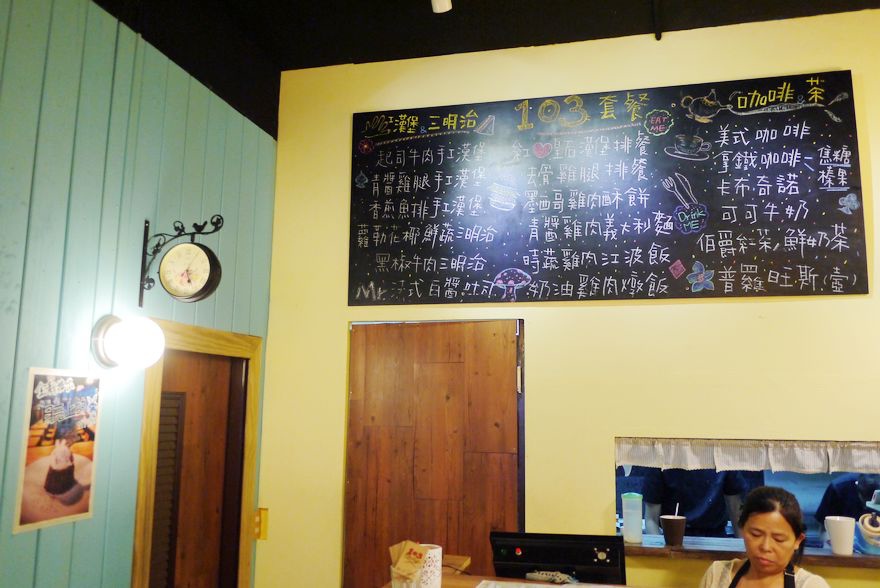 漢堡&三明治
起司牛肉手工漢堡
青醬雞腿手工漢堡
香煎魚排手工漢堡
蘿勒花椰鮮蔬三明治
黑椒牛肉三明治
法式白醬吐司
103套餐
EAT ME
紅心皇后漢堡排餐
去骨雞腿排餐
墨西哥雞肉酥餅
青醬雞肉義大利麵
時蔬雞肉江波飯
奶油雞肉燉飯
Drink ME
咖啡&茶
美式咖啡
拿鐵咖啡
焦糖
榛果
卡布奇諾
可可牛奶
伯爵紅茶/鮮奶茶
普羅旺斯(壺)